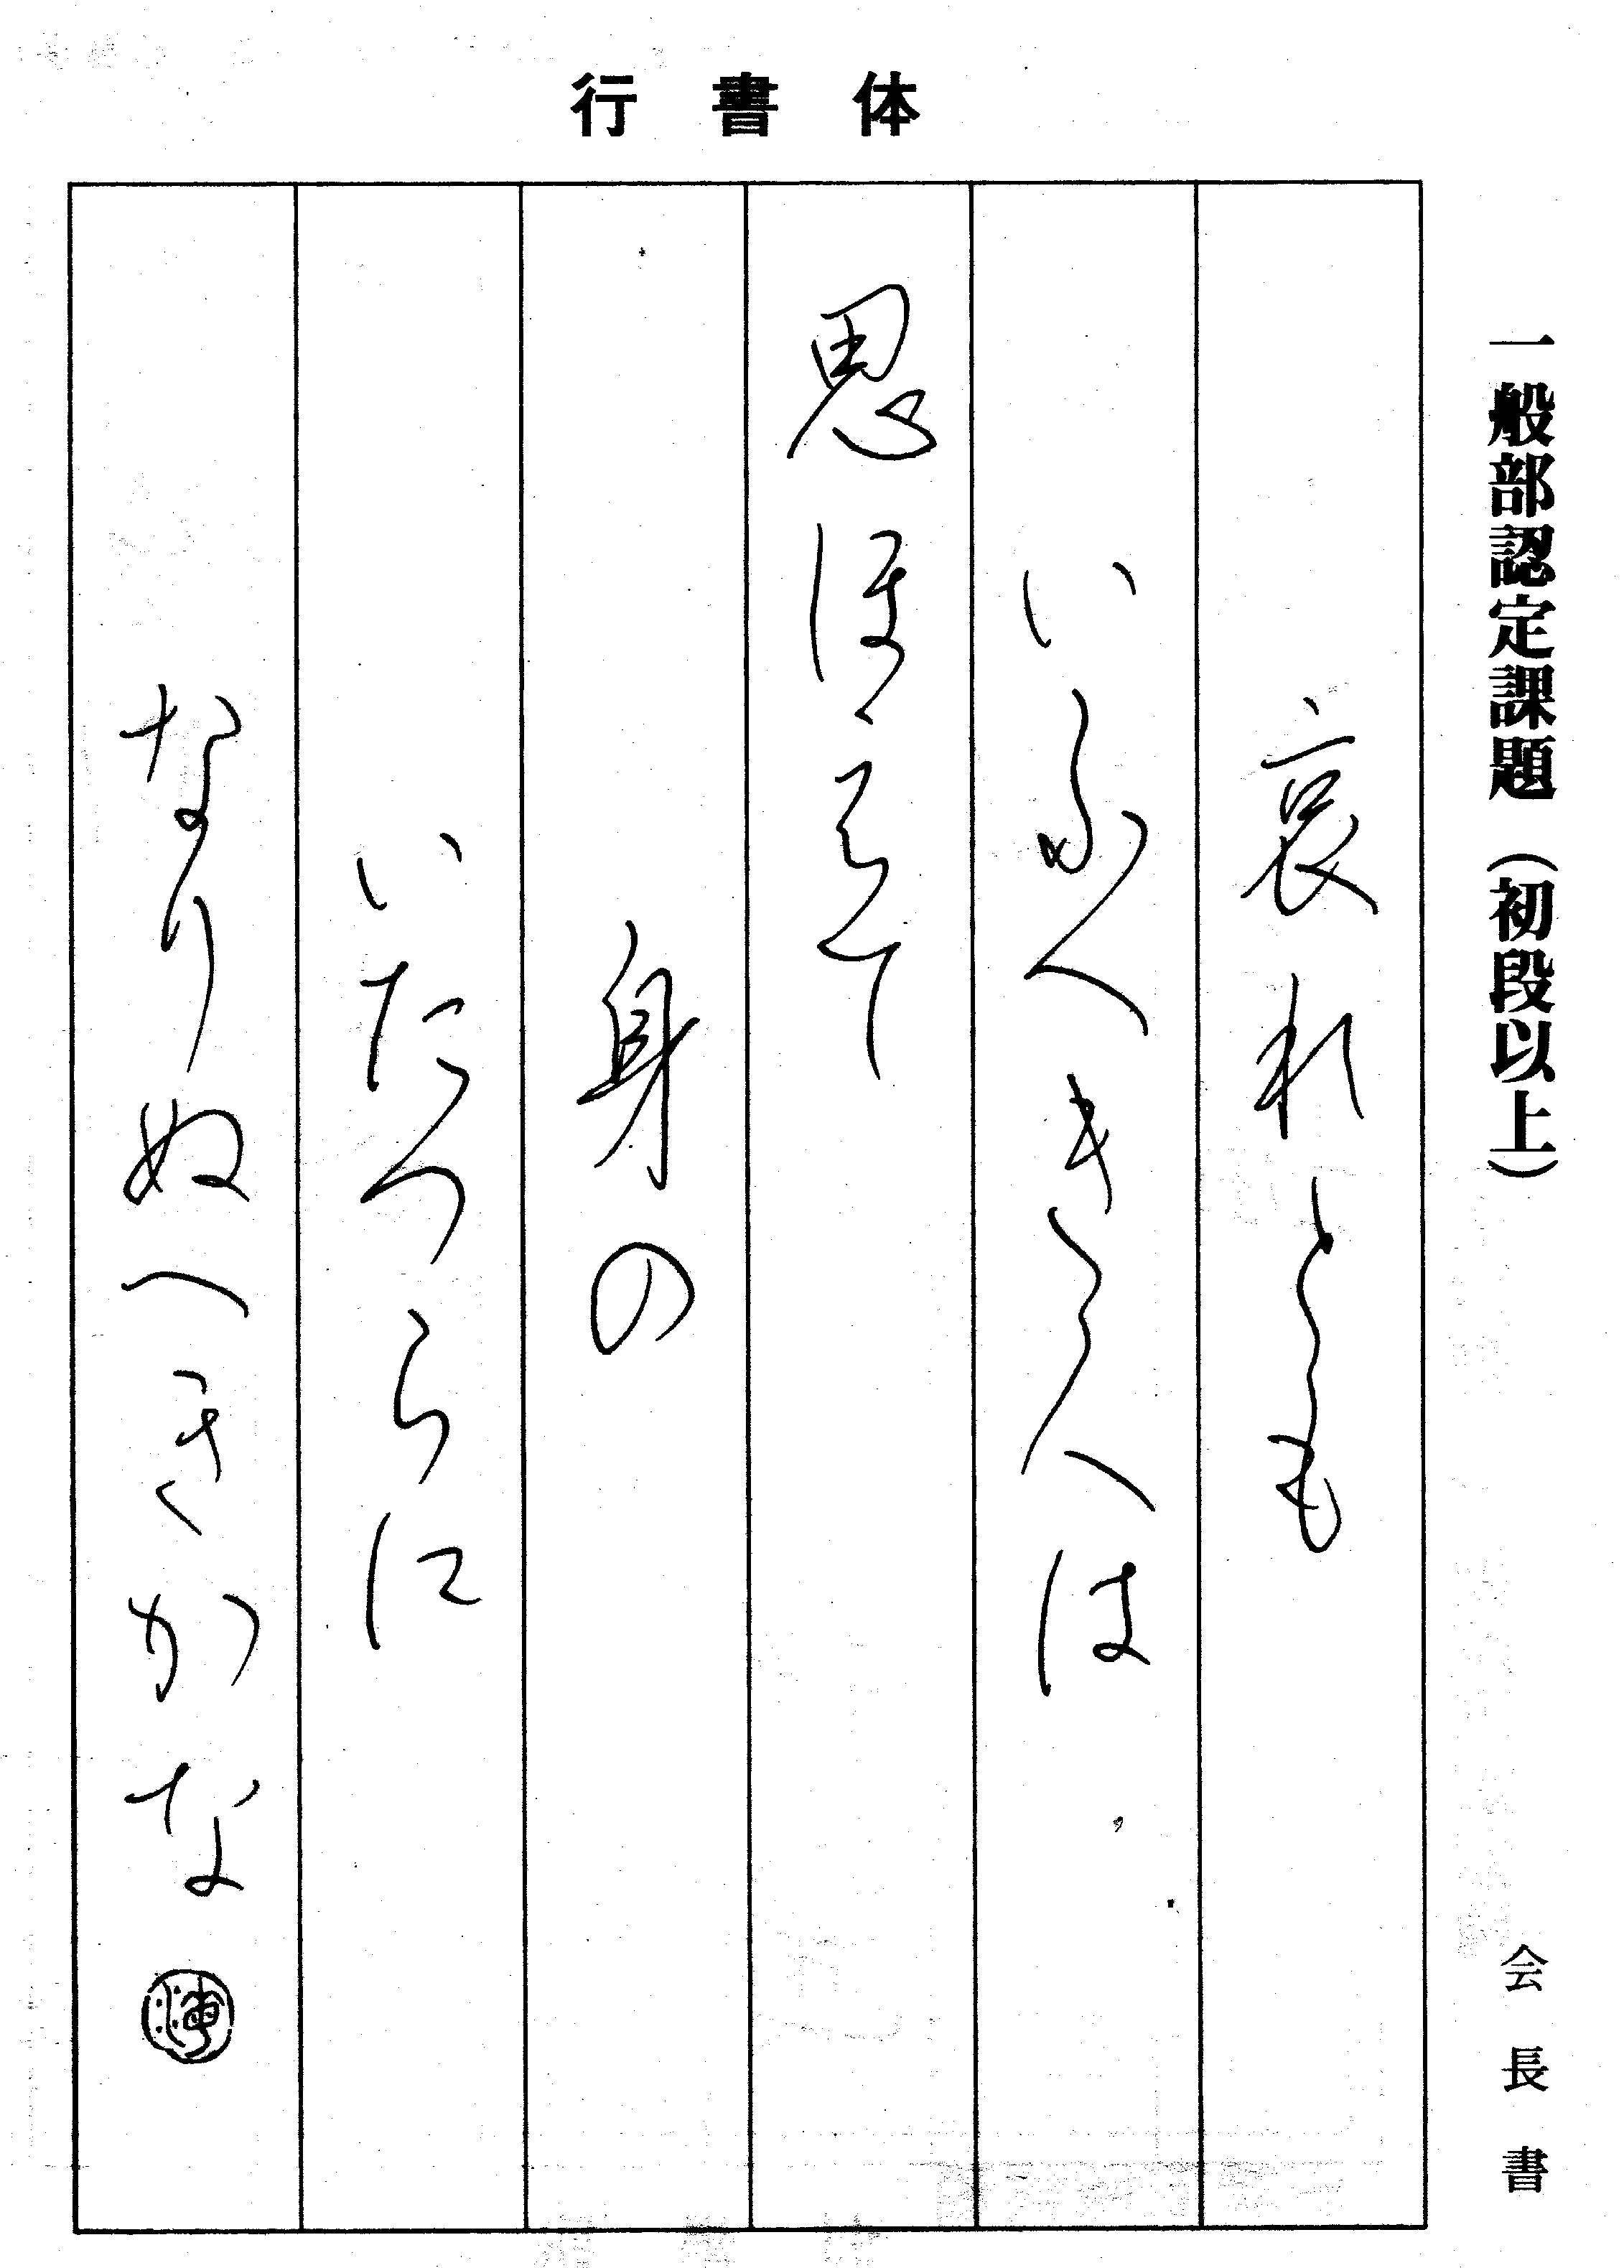 行書体
一般部認定課題（初段以上）
会長書
哀れとも
いふへき人は
思ほえて
身の
いたつらに
なりぬへきかな